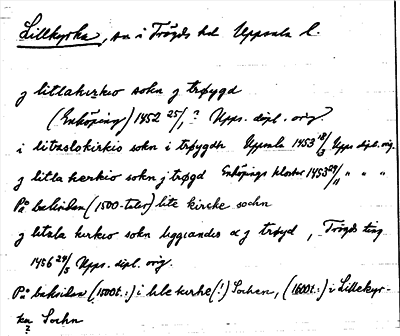 Lillkyrka, sn i Trögds hd Uppsala l.
j litlakirkio sokn j trøygd
(Enköping) 1452 25/1 ? Upps. dipl. orig.
i litaslokirkis sokn i trøygdh Uppsala 1453 18/3 Upps dipl. orig.
j litla kerkio sokn j trøgd Enköpings kloster 1453 29/11 " " "
På baksidan (1500-talet) lite kircke sochn
j litzla kirkio sokn liggiandes a j trøyd, Trögds ting
1456 24/5 Upps. dipl. orig.
På baksidan (1500t.:) i lile kirke (!) Sochen, (1600t:) i Lillekyr-
ka Sochn
?